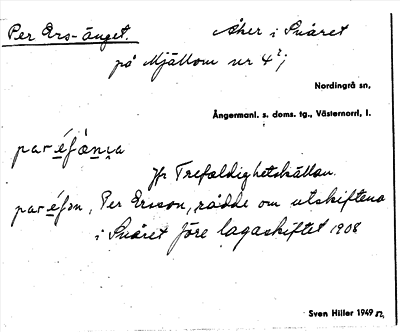 Per Ers-änget. Åker i Snåret
på Mjällom nr 4²;
Nordingrå sn,
Ångermanl. s. doms. tg., Västernorrl. l.
par-éfǝ́nɩa
Jfr Trefaldighetskällan.
par-éfǝn, Per Ersson, rådde om utskiftena
i Snåret före lagaskiftet 1908
Sven Hiller 1949